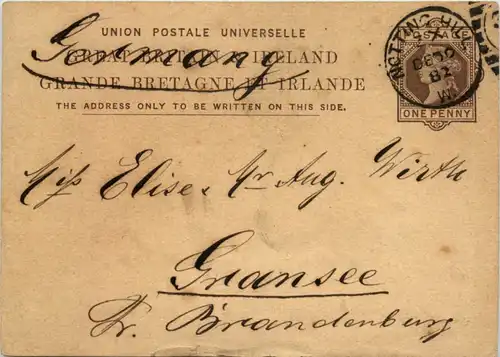 UNION POSTALE UNIVERSELLE
Germany
GREAT BRITAIN & IRELAND
GRANDE BRETAGNE ET IRLANDE
THE ADDRESS ONLY TO BE WRITTEN ON THIS SIDE.
NOTTING HILL
DE 30
82
W
POSTAGE
ONE PENNY
Miss Elise & Mr Aug. Wirth
Gransee
Pr. Brandenburg